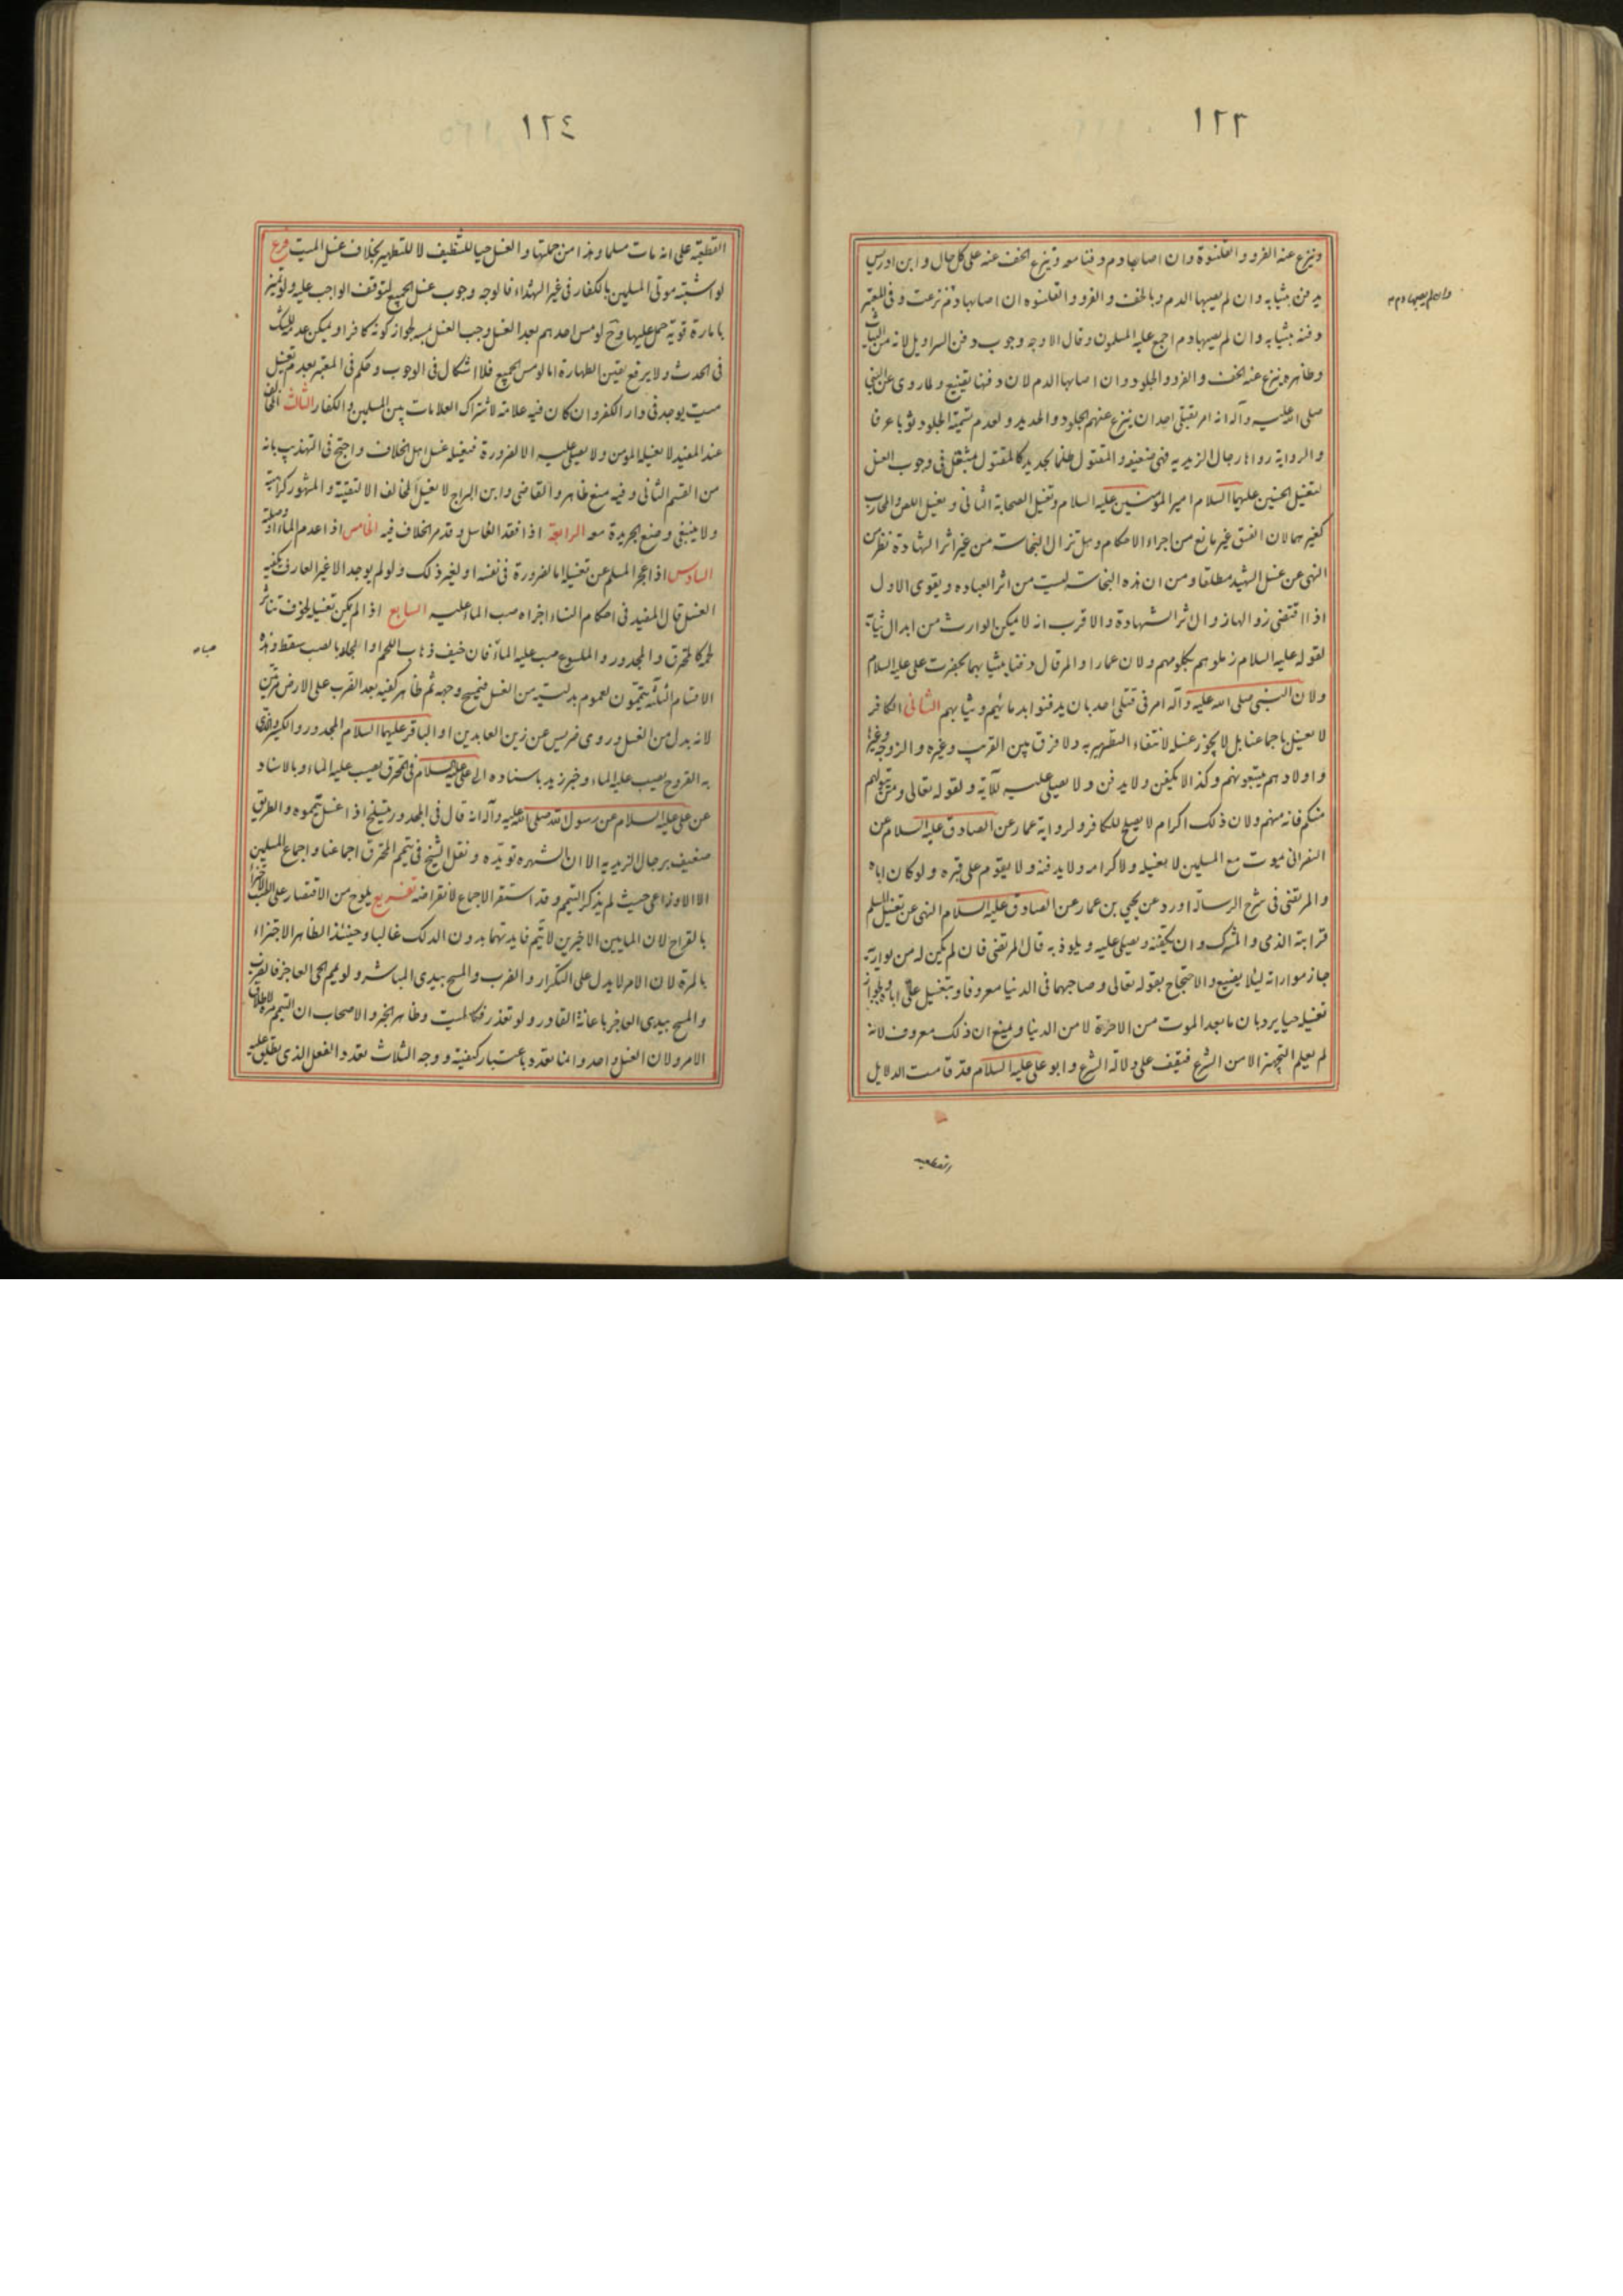 ١٢٣
وينزع عنه الفرو والقلنسوة وان اصابهما دم دفنا معه وينزع الخف عنه على كل حال وابن ادريس
يدفن بثيابه وان لم يصبها الدم وبالخف والفرو والقلنسوه ان اصابها دم نزعت وفى المعتبر
دفنه بثيابه وان لم يصبها دم اجمع عليه المسلمون وقال الاوجه وجوب دفن السراويل لانه من الثياب
وظاهره ينزع عنه الخف والفرو والجلود وان اصابها الدم لان دفنها تضييع ولما روى عن النبى
صلى الله عليه وآله انه امر بقتلى احد ان ينزع عنهم الجلود والحديد ولعدم تسمية الجلود ثوبا عرفا
والرواية رواها رجال الزيديه فهى ضعيفه والمقتول ظلما بحديد كالمقتول بمثقل فى وجوب الغسل
لتغسيل الحسنين عليهما السلام امير المؤمنين عليه السلام وتغسيل الصحابة الثانى ويغسل اللص والمحارب
كغيرهما لان الفسق غير مانع من اجراء الاحكام وهل تزال النجاسه من غير اثر الشهادة نظر من
النهى عن غسل الشهيد مطلقا ومن ان هذه النجاسه ليست من اثر العباده ويقوى الاول
اذا اقتضى زوالها زوال اثر الشهادة والاقرب انه لا يمكن الوارث من ابدال ثيابه
لقوله عليه السلام زملوهم بكلومهم ولان عمارا والمرقال دفنا بثيابهما بحضرت على عليه السلام
ولان النبى صلى الله عليه وآله امر فى قتلى احد بان يدفنوا بدمائهم وثيابهم الثانى الكافر
لا يغسل باجماعنا بل لا يجوز غسله لانتفاء التطهير به ولا فرق بين القريب وغيره والزوجه وغيرها
واولادهم يتبعونهم وكذا لا يكفن ولا يدفن ولا يصلى عليه للآية ولقوله تعالى ومن يتولهم
منكم فانه منهم ولان ذلك اكرام لا يصلح للكافر ولرواية عمار عن الصادق عليه السلام عن
النصرانى يموت مع المسلمين لا يغسله ولا كرامه ولا يدفنه ولا يقوم على قبره ولو كان اباه
والمرتضى فى شرح الرسالة اورد عن يحيى بن عمار عن الصادق عليه السلام النهى عن تغسيل المسلم
قرابته الذمى والمشرك وان يكفنه ويصلى عليه ويلوذ به قال المرتضى فان لم يكن له من يواريه
جاز مواراته ليلا يضيع والاحتجاج بقوله تعالى وصاحبهما فى الدنيا معروفا وبتغسيل على اباه وبجواز
تغسيله حيا يرد بان ما بعد الموت من الاخرة لا من الدنيا ويمنع ان ذلك معروف لانه
لم يعلم التجهيز الا من الشرع فيقف على دلالة الشرع وابو على عليه السلام قد قامت الدلايل
القطعيه
وان لم يصبها دم
١٢٤
القطعية على انه مات مسلما وهذا من جملتها والغسل حيا للتنظيف لا للتطهير بخلاف غسل الميت فرع
لو اشتبه موتى المسلمين بالكفار فى غير الشهداء فالوجه وجوب غسل الجميع لتوقف الواجب عليه ولو تميز
بامارة قوية حمل عليها وح لو مس احدهم بعد الغسل وجب الغسل بمسه لجواز كونه كافرا ويمكن عدمه للشك
فى الحدث ولا يرفع يقين الطهارة اما لو مس الجميع فلا اشكال فى الوجوب وحكم فى المعتبر بعدم تغسيل
ميت يوجد فى دار الكفر وان كان فيه علامة لاشتراك العلامات بين المسلمين والكفار الثالث المخالف
عند المفيد لا يغسله المومن ولا يصلى عليه الا لضرورة فيغسله غسل اهل الخلاف واحتج فى التهذيب بانه
من القسم الثانى وفيه منع ظاهر والقاضى وابن البراج لا يغسل المخالف الا لتقية والمشهور كراهية
ولا ينبغى وضع الجريدة معه الرابعة اذا فقد الغاسل وقد مر الخلاف فيه الخامس اذا عدم الماء او وصلته
السادس اذا عجز المسلم عن تغسيله اما لضرورة فى نفسه او لغير ذلك ولو لم يوجد الا غير العارف بكيفيه
الغسل قال المفيد فى احكام النساء اجزاه صب الماء عليه السابع اذا لم يكن تغسيله لخوف تناثر
لحمه كالمحترق والمجدور والملسوع صب عليه الماء فان خيف ذهاب اللحم او الجلد بالصب سقط وهذه
الاقسام الثلثة يتيممون لعموم بدليته من الغسل فيمسح وجهه ثم ظاهر كفيه بعد الضرب على الارض مرتين
لانه بدل من الغسل وروى ضريس عن زين العابدين او الباقر عليهما السلام المجدور والكسير والذى
به القروح يصب عليه الماء وخبر زيد باسناده الى على عليه السلام فى المحترق يصب عليه الماء وبالاسناد
عن على عليه السلام عن رسول الله صلى الله عليه وآله انه قال فى المجدور يتسلخ اذا غسل يتيموه والطريق
ضعيف برجال الزيديه الا ان الشهره تويده ونقل الشيخ فى تيمم المحترق اجماعنا واجماع المسلمين
الا الاوزاعى حيث لم يذكر التيمم وقد استقر الاجماع لانقراضه تفريع يلوح من الاقتصار على الصب الاجتزاء
بالقراح لان المايين الاخيرين لا يتم فايدتهما بدون الدلك غالبا وحينئذ الظاهر الاجتزاء
بالمرة لان الامر لا يدل على التكرار والضرب والمسح بيدى المباشر ولو يمم الحى العاجز فالضرب
والمسح بيدى العاجز باعانة القادر ولو تعذر فكالميت وظاهر الخبر والاصحاب ان التيمم مرة لاطلاق
الامر ولان الغسل واحد وانما تعدد باعتبار كيفيته ووجه الثلاث تعدد الفعل الذى يطلق عليه